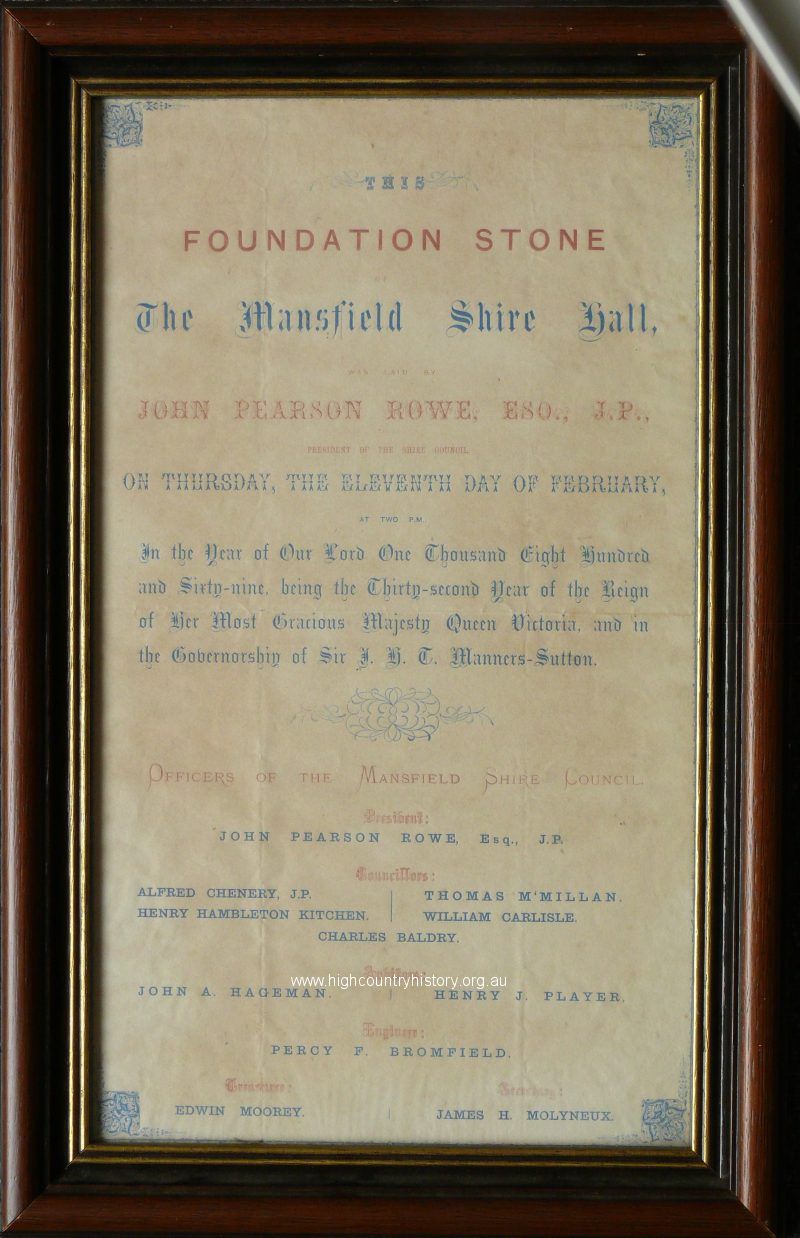 THIS
FOUNDATION STONE
OF
The Mansfield Shire Hall,
WAS LAID BY
JOHN PEARSON ROWE, ESQ., J.P.,
PRESIDENT OF THE SHIRE COUNCIL
ON THURSDAY, THE ELEVENTH DAY OF FEBRUARY,
AT TWO P.M.
In the Year of Our Lord One Thousand Eight Hundred
and Sixty-nine, being the Thirty-second Year of the Reign
of Her Most Gracious Majesty Queen Victoria, and in
the Governorship of Sir J. H. T. Manners-Sutton.
OFFICERS OF THE MANSFIELD SHIRE COUNCIL.
President:
JOHN PEARSON ROWE, Esq., J.P.
Councillors:
ALFRED CHENERY, J.P. THOMAS M'MILLAN.
HENRY HAMBLETON KITCHEN. WILLIAM CARLISLE.
CHARLES BALDRY.
www.highcountryhistory.org.au
JOHN A. HAGEMAN. HENRY J. PLAYER.
Engineer:
PERCY F. BROMFIELD.
Treasurer: Secretary:
EDWIN MOOREY. JAMES H. MOLYNEUX.